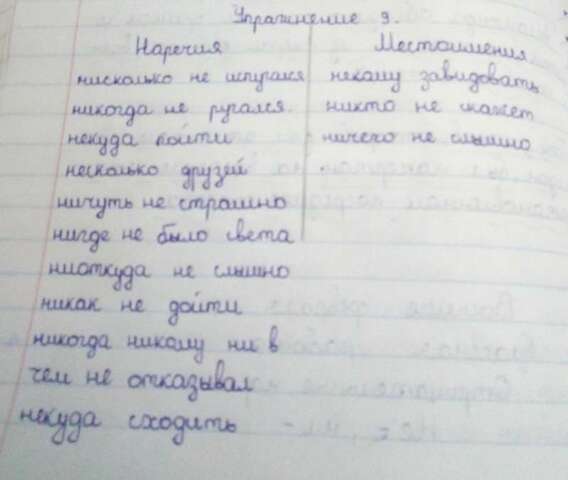 Упражнение 9.
Наречия Местоимения
нисколько не испугался некому завидовать
никогда не ругался. никто не скажет
некуда пойти ничего не слышно
несколько друзей
ничуть не страшно
нигде не было света
ниоткуда не слышно
никак не дойти
никогда никому ни в
чем не отказывал
некуда сходить